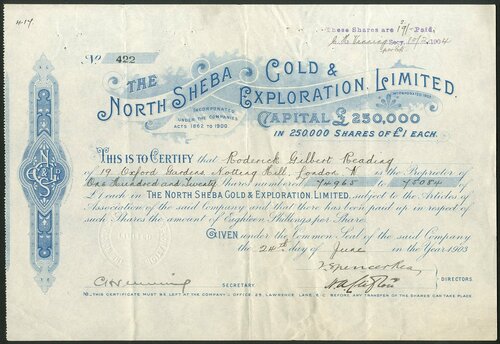 4-17.
These Shares are 19/- Paid.
Secy. 1904
No 422
THE NORTH SHEBA GOLD & EXPLORATION, LIMITED.
INCORPORATED UNDER THE COMPANIES ACTS 1862 TO 1900.
INCORPORATED 1902
CAPITAL £250,000
IN 250,000 SHARES OF £1 EACH.
THIS IS TO CERTIFY that Roderick Gilbert Reading
of 19 Oxford Gardens, Notting Hill, London W is the Proprietor of
One Hundred and Twenty shares numbered 74965 to 75084 of
£1 each in THE NORTH SHEBA GOLD & EXPLORATION, LIMITED, subject to the Articles of
Association of the said Company and that there has been paid up in respect of
such Shares the amount of Eighteen Shillings per Share.
GIVEN under the Common Seal of the said Company
the 24th day of June in the Year 1903
SECRETARY.
DIRECTORS.
NO. THIS CERTIFICATE MUST BE LEFT AT THE COMPANY'S OFFICE 25, LAWRENCE LANE, E.C. BEFORE ANY TRANSFER OF THE SHARES CAN TAKE PLACE.